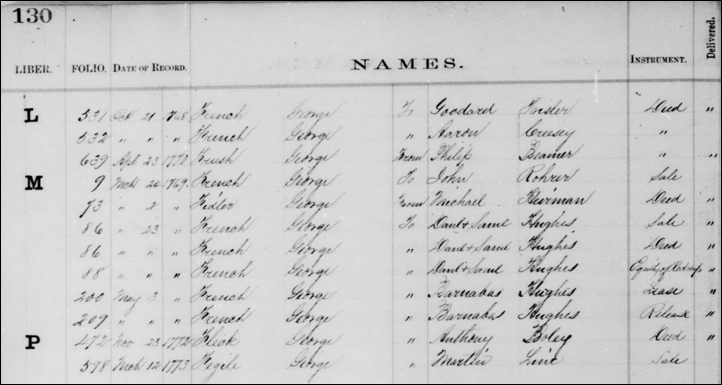 130
LIBER. FOLIO. DATE OF RECORD. NAMES. INSTRUMENT. Delivered.
L 531 Oct 21 1768 French George To Goodard Deed "
532 " " " French George " Aaron Cressey " "
639 Apl 23 1770 George From Philip Beamer " "
M 9 Mch 20 1769 French George To John Rohrer Sale "
73 " 2 " Fidler George From Michael Deed "
86 " 23 " French George To Danl & Saml Hughes Sale "
86 " " " French George " Danl & Saml Hughes Deed "
88 " " " French George " Danl & Saml Hughes Equity of "
200 May 3 " French George " Barnabas Hughes Lease "
209 " " " French George " Barnabas Hughes Release "
P 472 Nov 23 1772 Flick George " Anthony Boley Deed "
578 Mch 12 1773 George " Martin Sale "